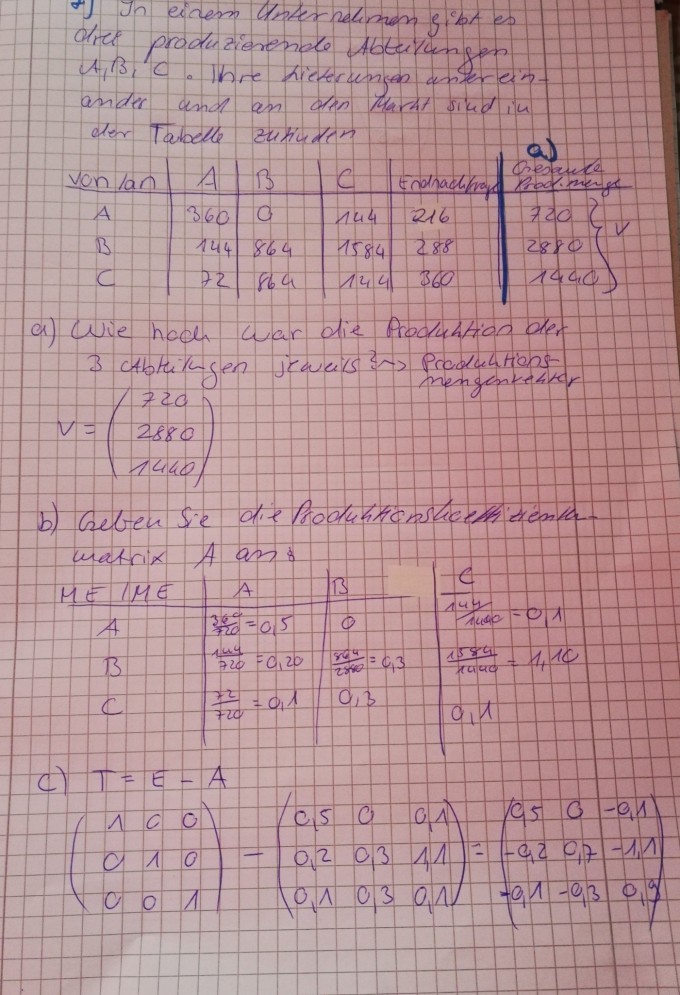 In einem Unternehmen gibt es
drei produzierende Abteilungen
A, B, C. Ihre Lieferungen unterein-
ander und an den Markt sind in
der Tabelle zufinden
a)
von/an A B C Endnachfrage Gesamte Prod.menge
A 360 0 144 216 720
B 144 864 1584 288 2880 } v
C 72 864 144 360 1440
a) Wie hoch war die Produktion der
3 Abteilungen jeweils? ~> Produktions-
mengenvektor
V = (720
2880
1440)
b) Geben Sie die Produktionskoeffizienten-
matrix A an:
ME/ME A B C
A 360/720 = 0,5 0 144/1440 = 0,1
B 144/720 = 0,20 864/2880 = 0,3 1584/1440 = 1,10
C 72/720 = 0,1 0,3 0,1
c) T = E - A
(1 0 0) (0,5 0 0,1) (0,5 0 -0,1)
(0 1 0) - (0,2 0,3 1,1) = (-0,2 0,7 -1,1)
(0 0 1) (0,1 0,3 0,1) (-0,1 -0,3 0,9)